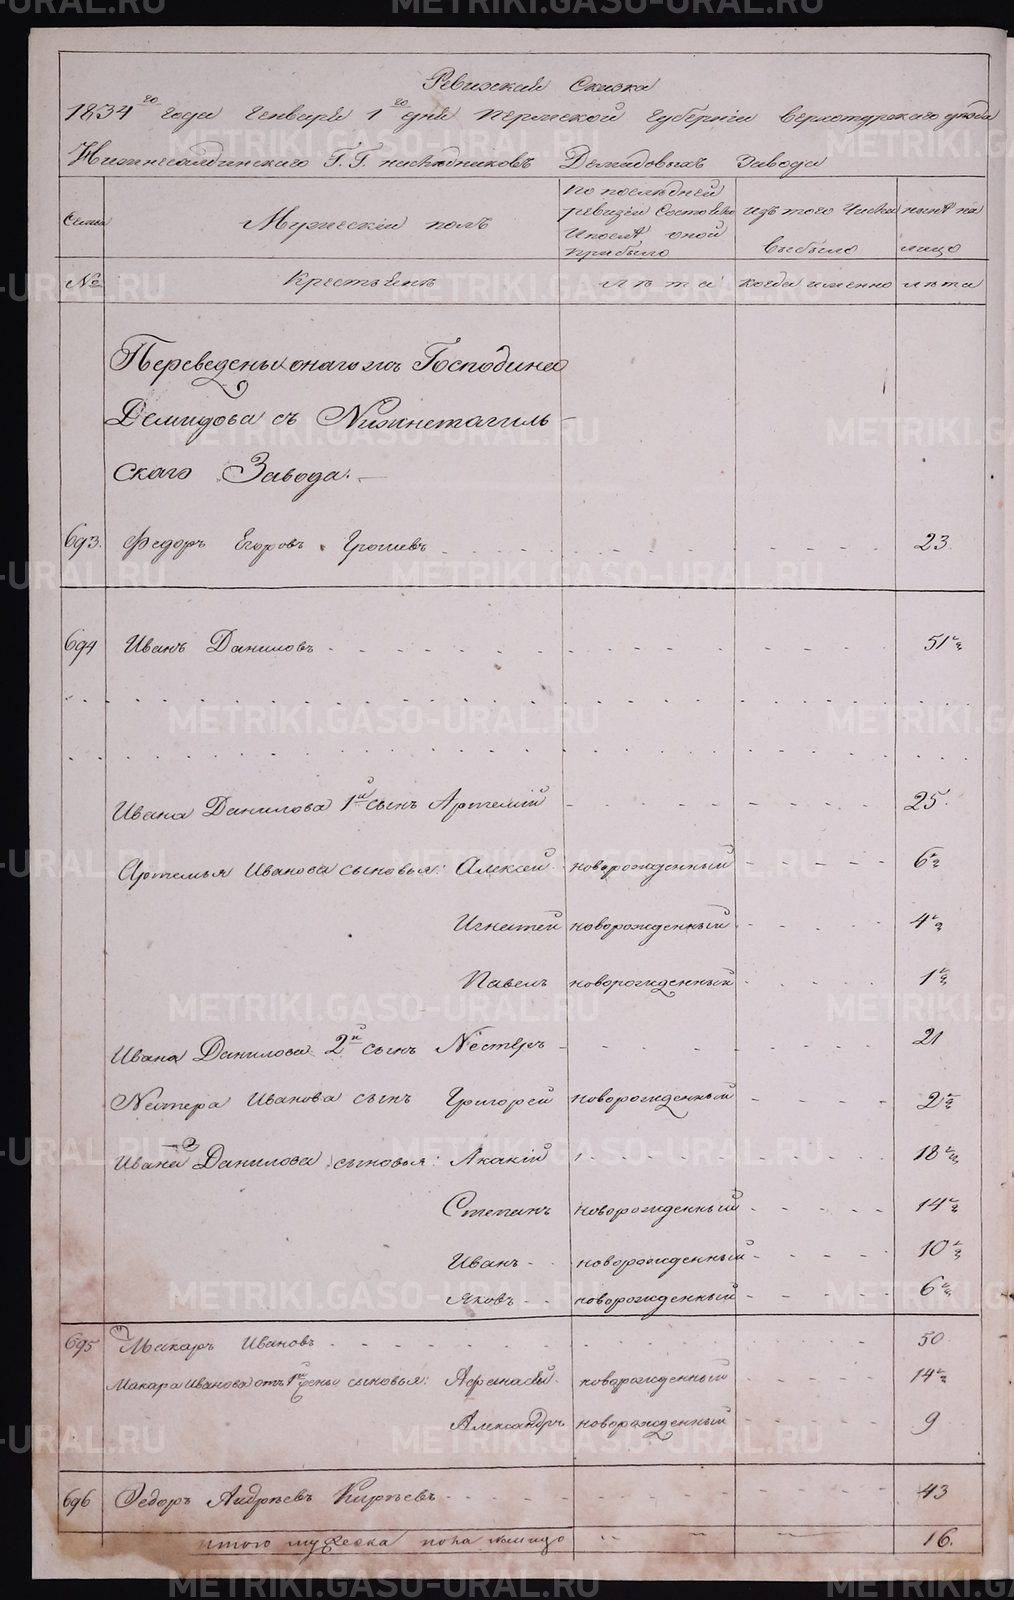 Ревижская Сказка
1834го года Генваря 1го дня Пермской Губернiи Верхотурскаго уезда
Нижнесалдинскаго Г.Г. наследниковъ Демидовыхъ Завода
Семьи
Мужескiй полъ
По последней
ревизiи Состояло
И после оной
прибыло
Изъ того Числа
выбыло
ныне на
лицо
№
Крестьянъ
лета
когда именно
лета
Переведены онаго жъ Господина
Демидова съ Нижнетагиль-
скаго Завода.
693. Федоръ Егоровъ 23.
694 Иванъ Даниловъ 51 ½
Ивана Данилова 1й сынъ Артемiй 25.
Артемья Иванова сыновья: Алексей новорожденный 6 ½
Игнатей новорожденный 4 ½
Павелъ новорожденный 1 ½
Ивана Данилова 2й сынъ Нестеръ 21
Нестера Иванова сынъ Григорей новорожденный 2 ½
Ивана Данилова сыновья: Акакiй 18
Степанъ новорожденный 14 ½
Иванъ новорожденный 10 ½
Яковъ новорожденный 6
695 Макаръ Ивановъ 50
Макара Иванова отъ 1й жены сыновья: Афанасей новорожденный 14 ½
Александръ новорожденный 9
696 Федоръ Андреевъ Киреевъ 43
Итого мужеска пола налицо 16.
METRIKI.GASO-URAL.RU